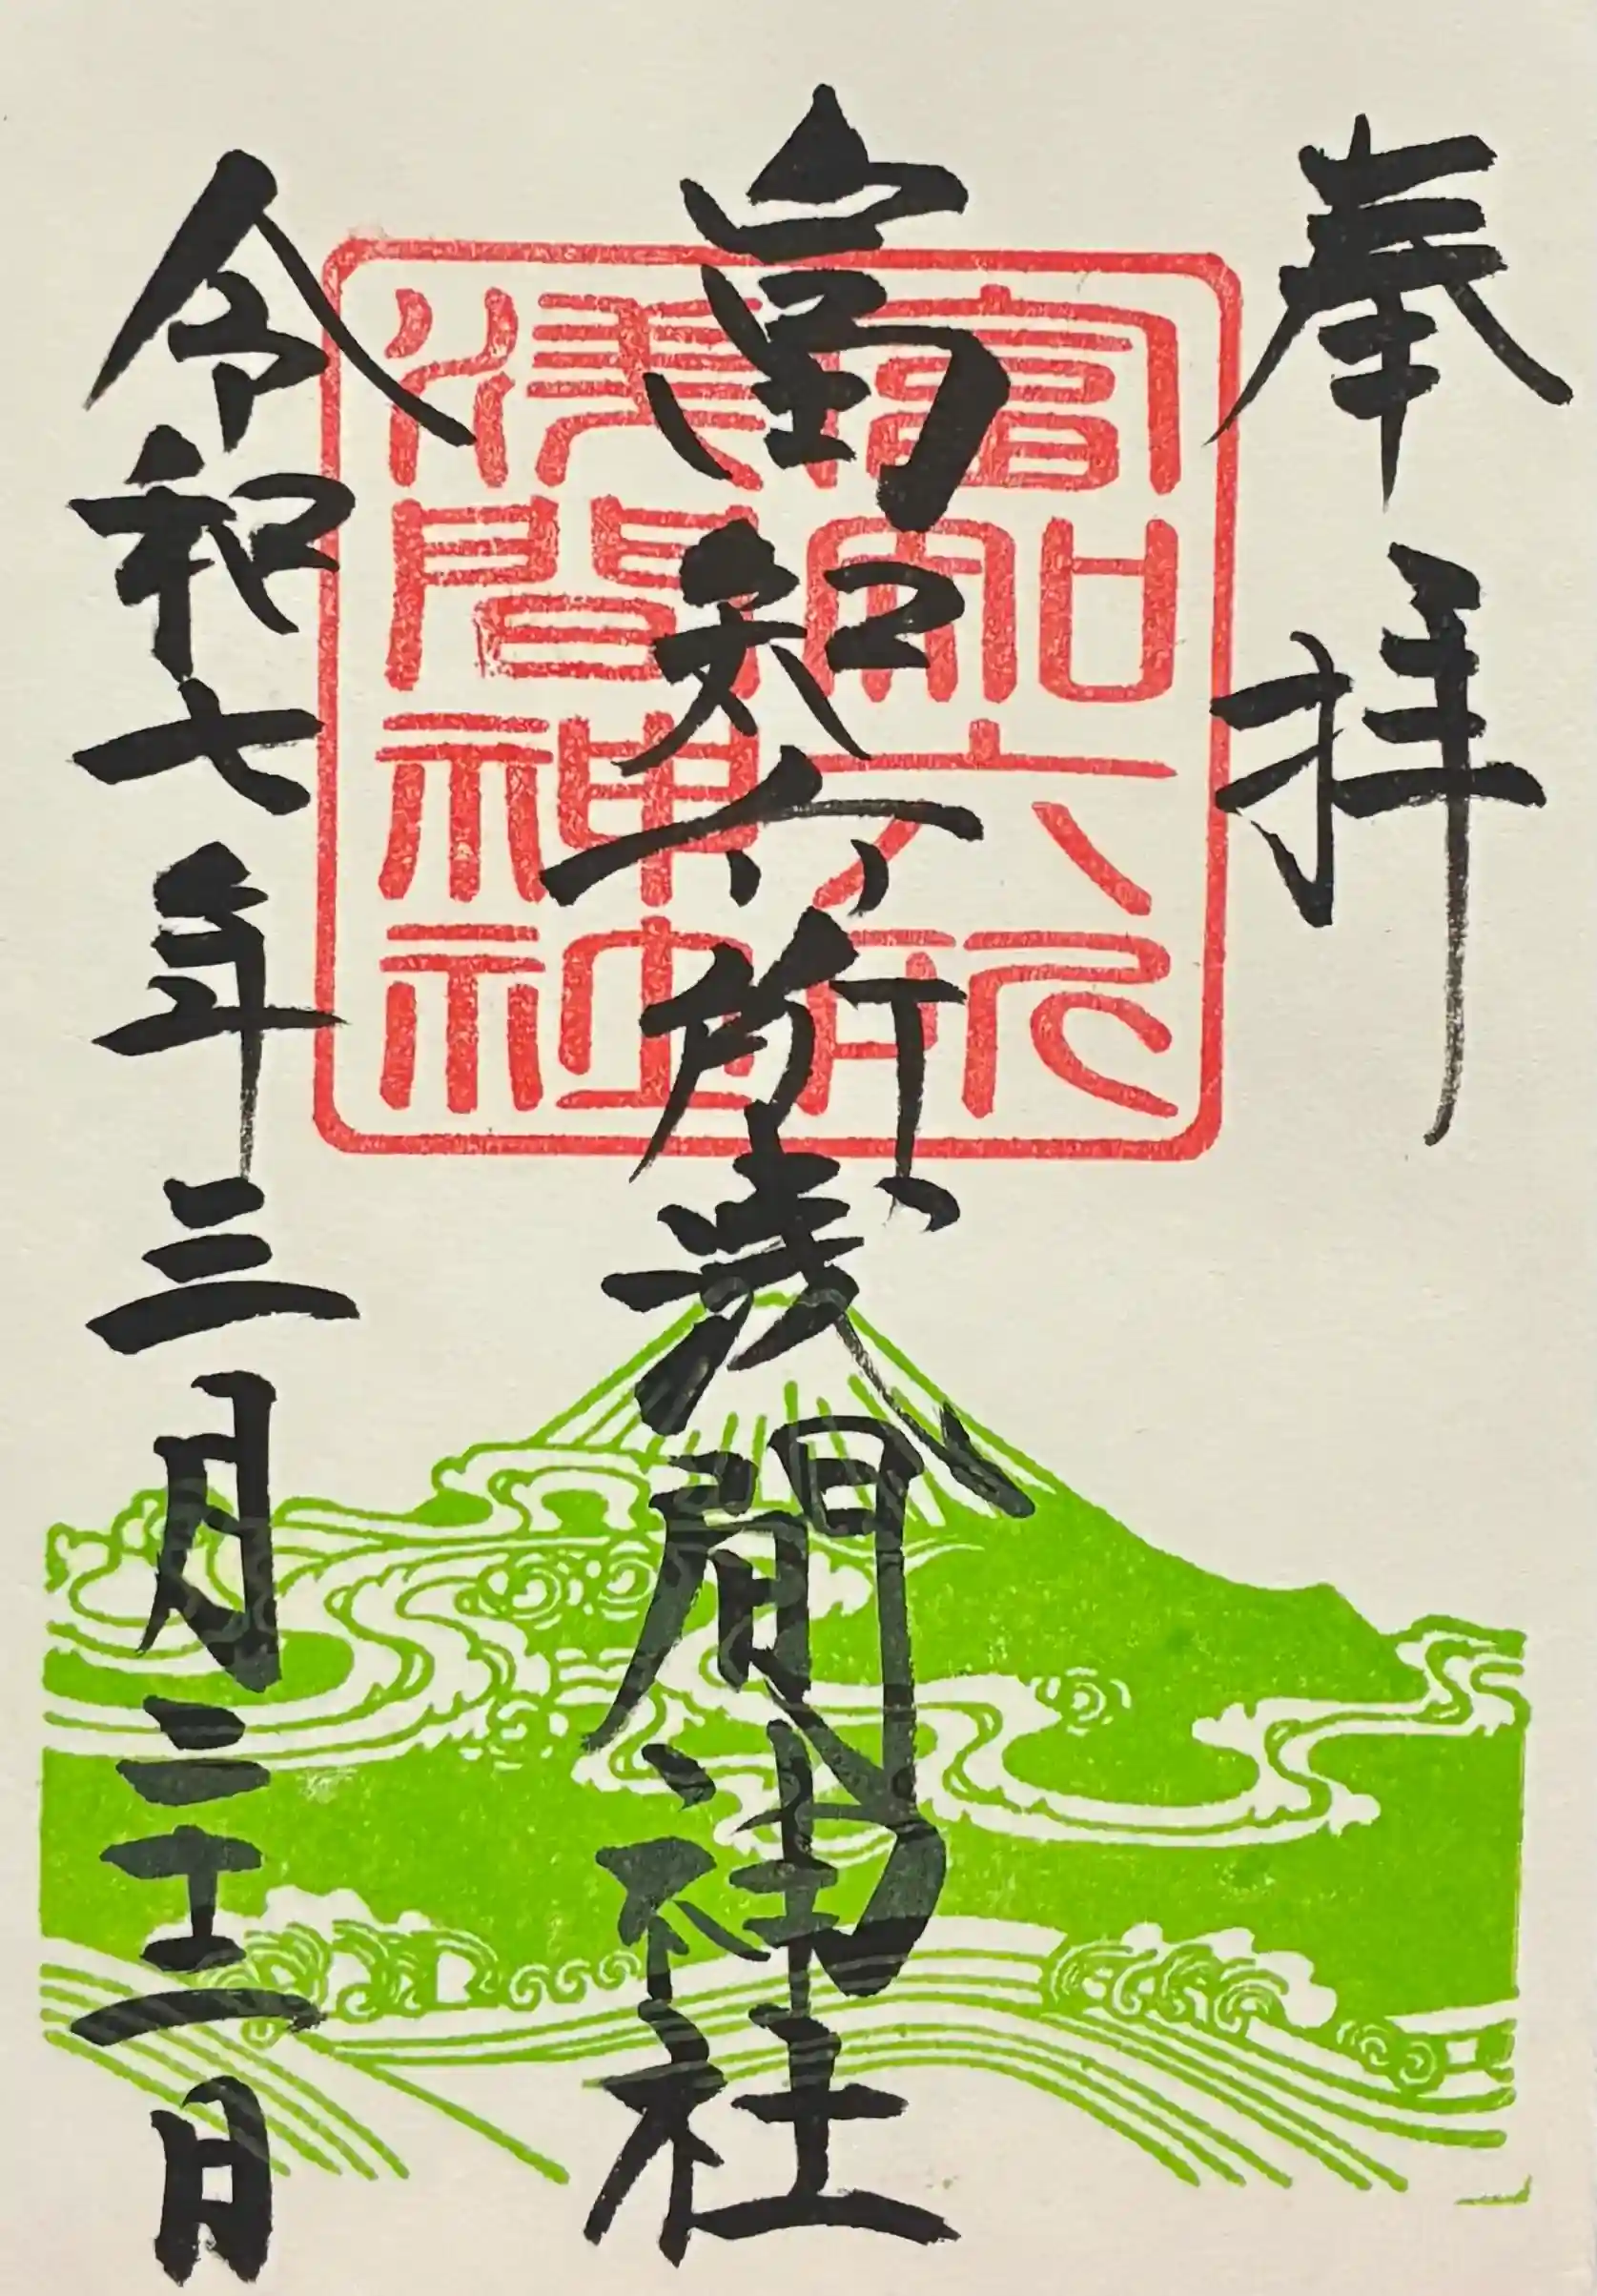 奉拝
富知六所浅間神社
令和七年三月二十二日
富知六所
浅間神社